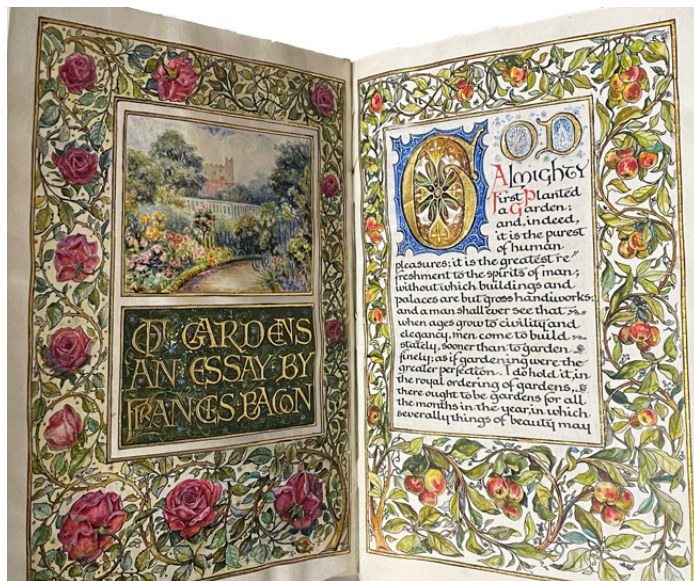 OF GARDENS
AN ESSAY BY
FRANCIS BACON
GOD
Almighty
First Planted
a Garden;
and, indeed,
it is the purest
of human
pleasures; it is the greatest re"
freshment to the spirits of man;
without which buildings and
palaces are but gross handiworks:
and a man shall ever see that
when ages grow to civility and
elegancy, men come to build
stately, sooner than to garden
finely; as if gardening were the
greater perfection. I do hold it, in
the royal ordering of gardens,
there ought to be gardens for all
the months in the year, in which
severally things of beauty may